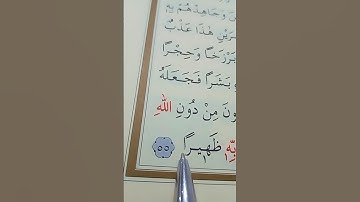 وَجَاهِدْهُمْ بِهِ
هَٰذَا عَذْبٌ
بَرْزَخًا وَحِجْرًا
بَشَرًا فَجَعَلَهُ
مِنْ دُونِ اللّٰهِ
ظَهِيرًا ٥٥